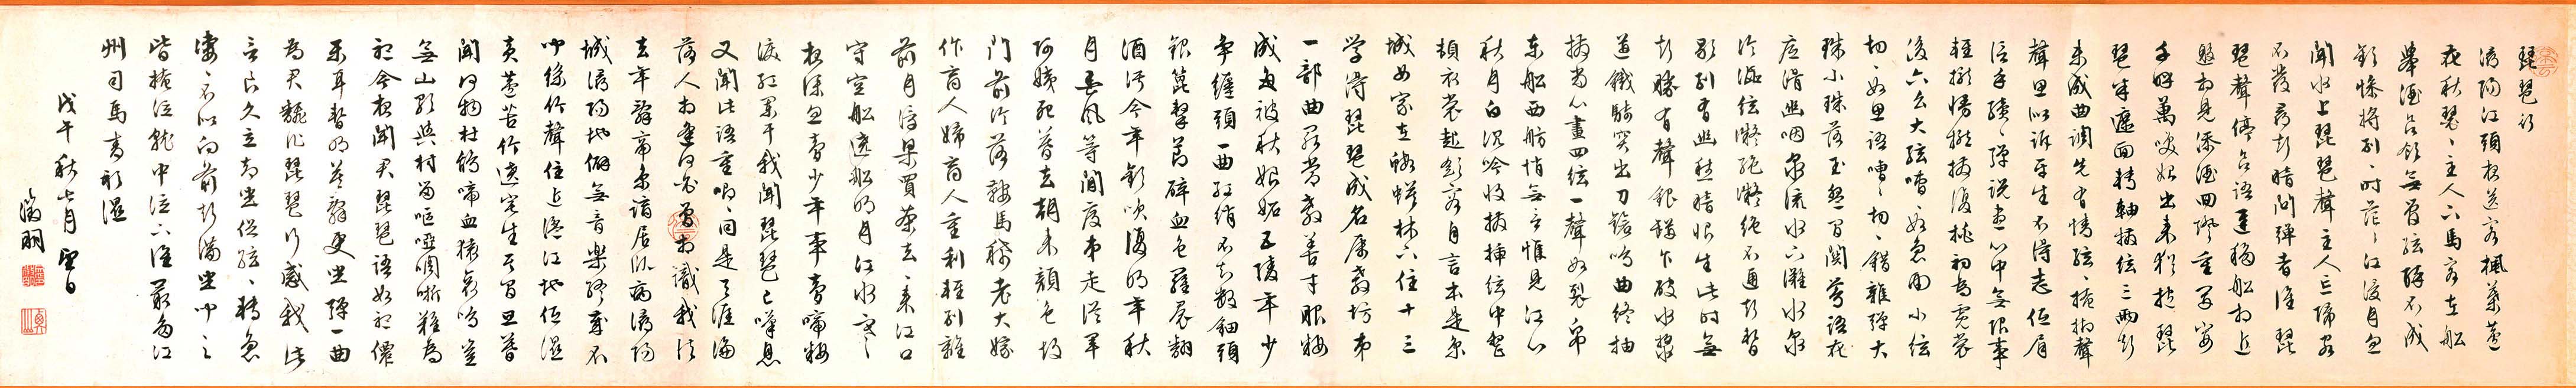 琵琶行
潯陽江頭夜送客楓葉蘆
花秋瑟〻主人下馬客在船
舉酒欲飲無管絃醉不成
歡慘將別〻時茫〻江浸月忽
聞水上琵琶聲主人忘歸客
不發尋聲暗問彈者誰琵
琶聲停欲語遲移船相近
邀相見添酒回燈重開宴
千呼萬喚始出來猶抱琵
琶半遮面轉軸撥絃三兩聲
未成曲調先有情絃〻掩抑聲
聲思似訴平生不得志低眉
信手續〻彈說盡心中無限事
輕攏慢撚撥復挑初為霓裳
後六幺大絃嘈〻如急雨小絃
切〻如私語嘈〻切〻錯雜彈大
珠小珠落玉盤間關鶯語花
底滑幽咽泉流水下灘水泉
冷澀絃凝絕凝絕不通聲暫
歇別有幽愁暗恨生此時無
聲勝有聲銀瓶乍破水漿
迸鐵騎突出刀鎗鳴曲終抽
撥當心畫四絃一聲如裂帛
東船西舫悄無言惟見江心
秋月白沉吟收撥插絃中整
頓衣裳起斂容自言本是京
城女家在蝦蟆陵下住十三
學得琵琶成名屬教坊第
一部曲罷常教善才服妝
成每被秋娘妬五陵年少
爭纏頭一曲紅綃不知數鈿頭
銀篦擊節碎血色羅裙翻
酒污今年歡笑復明年秋
月春風等閒度弟走從軍
阿姨死暮去朝來顏色故
門前冷落鞍馬稀老大嫁
作商人婦商人重利輕別離
前月浮梁買茶去〻來江口
守空船遶船明月江水寒
夜深忽夢少年事夢啼妝
淚紅闌干我聞琵琶已嘆息
又聞此語重唧〻同是天涯淪
落人相逢何必曾相識我從
去年辭帝京謫居臥病潯陽
城潯陽地僻無音樂終歲不
聞絲竹聲住近湓江地低濕
黃蘆苦竹遶宅生其間旦暮
聞何物杜鵑啼血猿哀鳴豈
無山歌與村笛嘔啞嘲哳難為
聽今夜聞君琵琶語如聽仙
樂耳暫明莫辭更坐彈一曲
為君翻作琵琶行感我此
言良久立却坐促絃〻轉急
淒〻不似向前聲滿坐聞之
皆掩泣就中泣下誰最多江
州司馬青衫濕
戊午秋七月望日